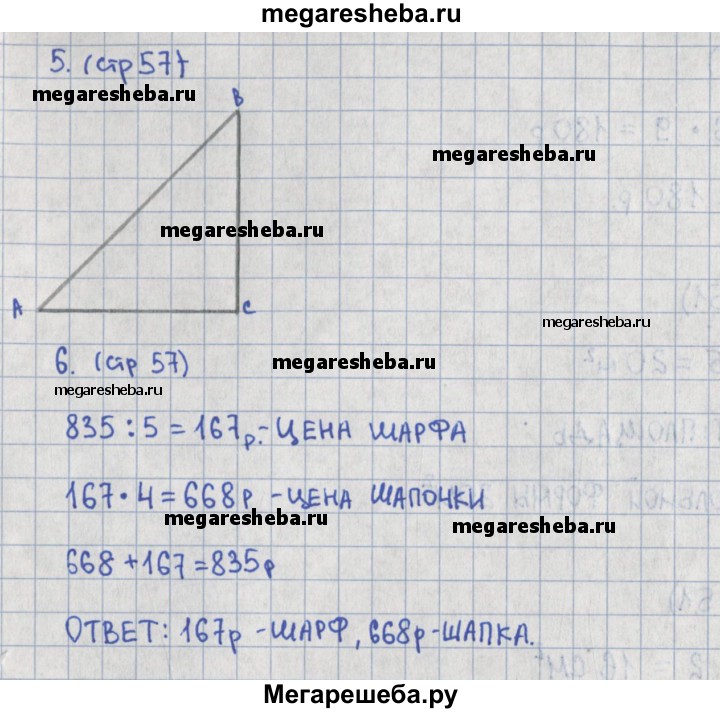 megaresheba.ru
5. (стр 57)
megaresheba.ru
B
megaresheba.ru
megaresheba.ru
A
C
megaresheba.ru
6. (стр 57)
megaresheba.ru
megaresheba.ru
835 : 5 = 167р.- ЦЕНА ШАРФА
167 · 4 = 668р - ЦЕНА ШАПОЧКИ
megaresheba.ru
megaresheba.ru
668 + 167 = 835р
ОТВЕТ: 167р - ШАРФ, 668р - ШАПКА.
Мегарешеба.ру